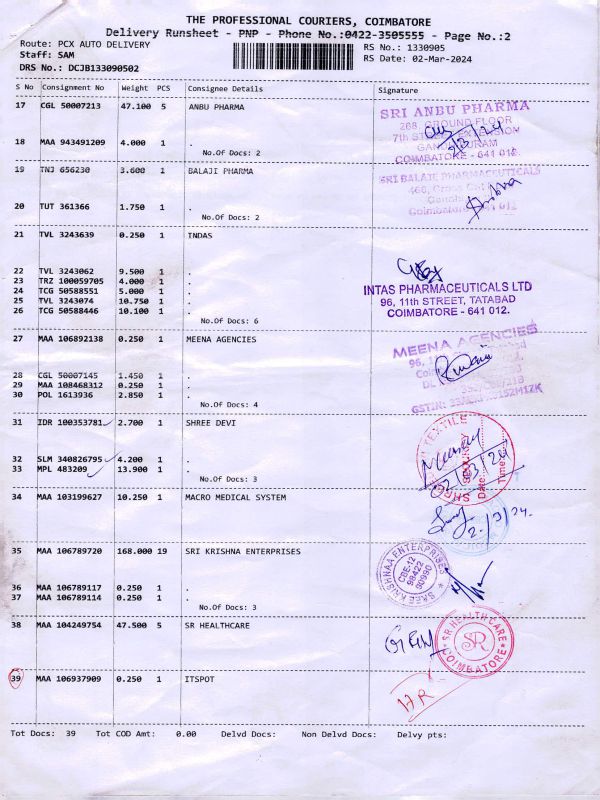 THE PROFESSIONAL COURIERS, COIMBATORE
Delivery Runsheet - PNP - Phone No.:0422-3505555 - Page No.:2
Route: PCX AUTO DELIVERY RS No.: 1330905
Staff: SAM RS Date: 02-Mar-2024
DRS No.: DCJB133090502
S No Consignment No Weight PCS Consignee Details Signature
17 CGL 50007213 47.100 5 ANBU PHARMA
SRI ANBU PHARMA
268, GROUND FLOOR
7th STREET EXTENSION
18 MAA 943491209 4.000 1 .
COIMBATORE - 641 012.
No.Of Docs: 2
19 TNJ 656230 3.600 1 BALAJI PHARMA
SRI BALAJI PHARMACEUTICALS
20 TUT 361366 1.750 1 .
No.Of Docs: 2
21 TVL 3243639 0.250 1 INDAS
22 TVL 3243062 9.500 1 .
23 TRZ 100059705 4.000 1 .
24 TCG 50588551 5.000 1 .
25 TVL 3243074 10.750 1 .
26 TCG 50588446 10.100 1 .
INTAS PHARMACEUTICALS LTD
96, 11th STREET, TATABAD
COIMBATORE - 641 012.
No.Of Docs: 6
27 MAA 106892138 0.250 1 MEENA AGENCIES
MEENA AGENCIES
28 CGL 50007145 1.450 1 .
29 MAA 108468312 0.250 1 .
30 POL 1613936 2.850 1 .
No.Of Docs: 4
31 IDR 100353781 2.700 1 SHREE DEVI
TEXTILE
Date
Time
02/03/24
32 SLM 340826795 4.200 1 .
33 MPL 483209 13.900 1 .
No.Of Docs: 3
34 MAA 103199627 10.250 1 MACRO MEDICAL SYSTEM
2/3/24.
35 MAA 106789720 168.000 19 SRI KRISHNA ENTERPRISES
SREE KRISHNAA ENTERPRISES
CBE-12
98422
90990
36 MAA 106789117 0.250 1 .
37 MAA 106789114 0.250 1 .
No.Of Docs: 3
38 MAA 104249754 47.500 5 SR HEALTHCARE
SR HEALTH CARE
SR
COIMBATORE
39 MAA 106937909 0.250 1 ITSPOT
Tot Docs: 39 Tot COD Amt: 0.00 Delvd Docs: Non Delvd Docs: Delvy pts: